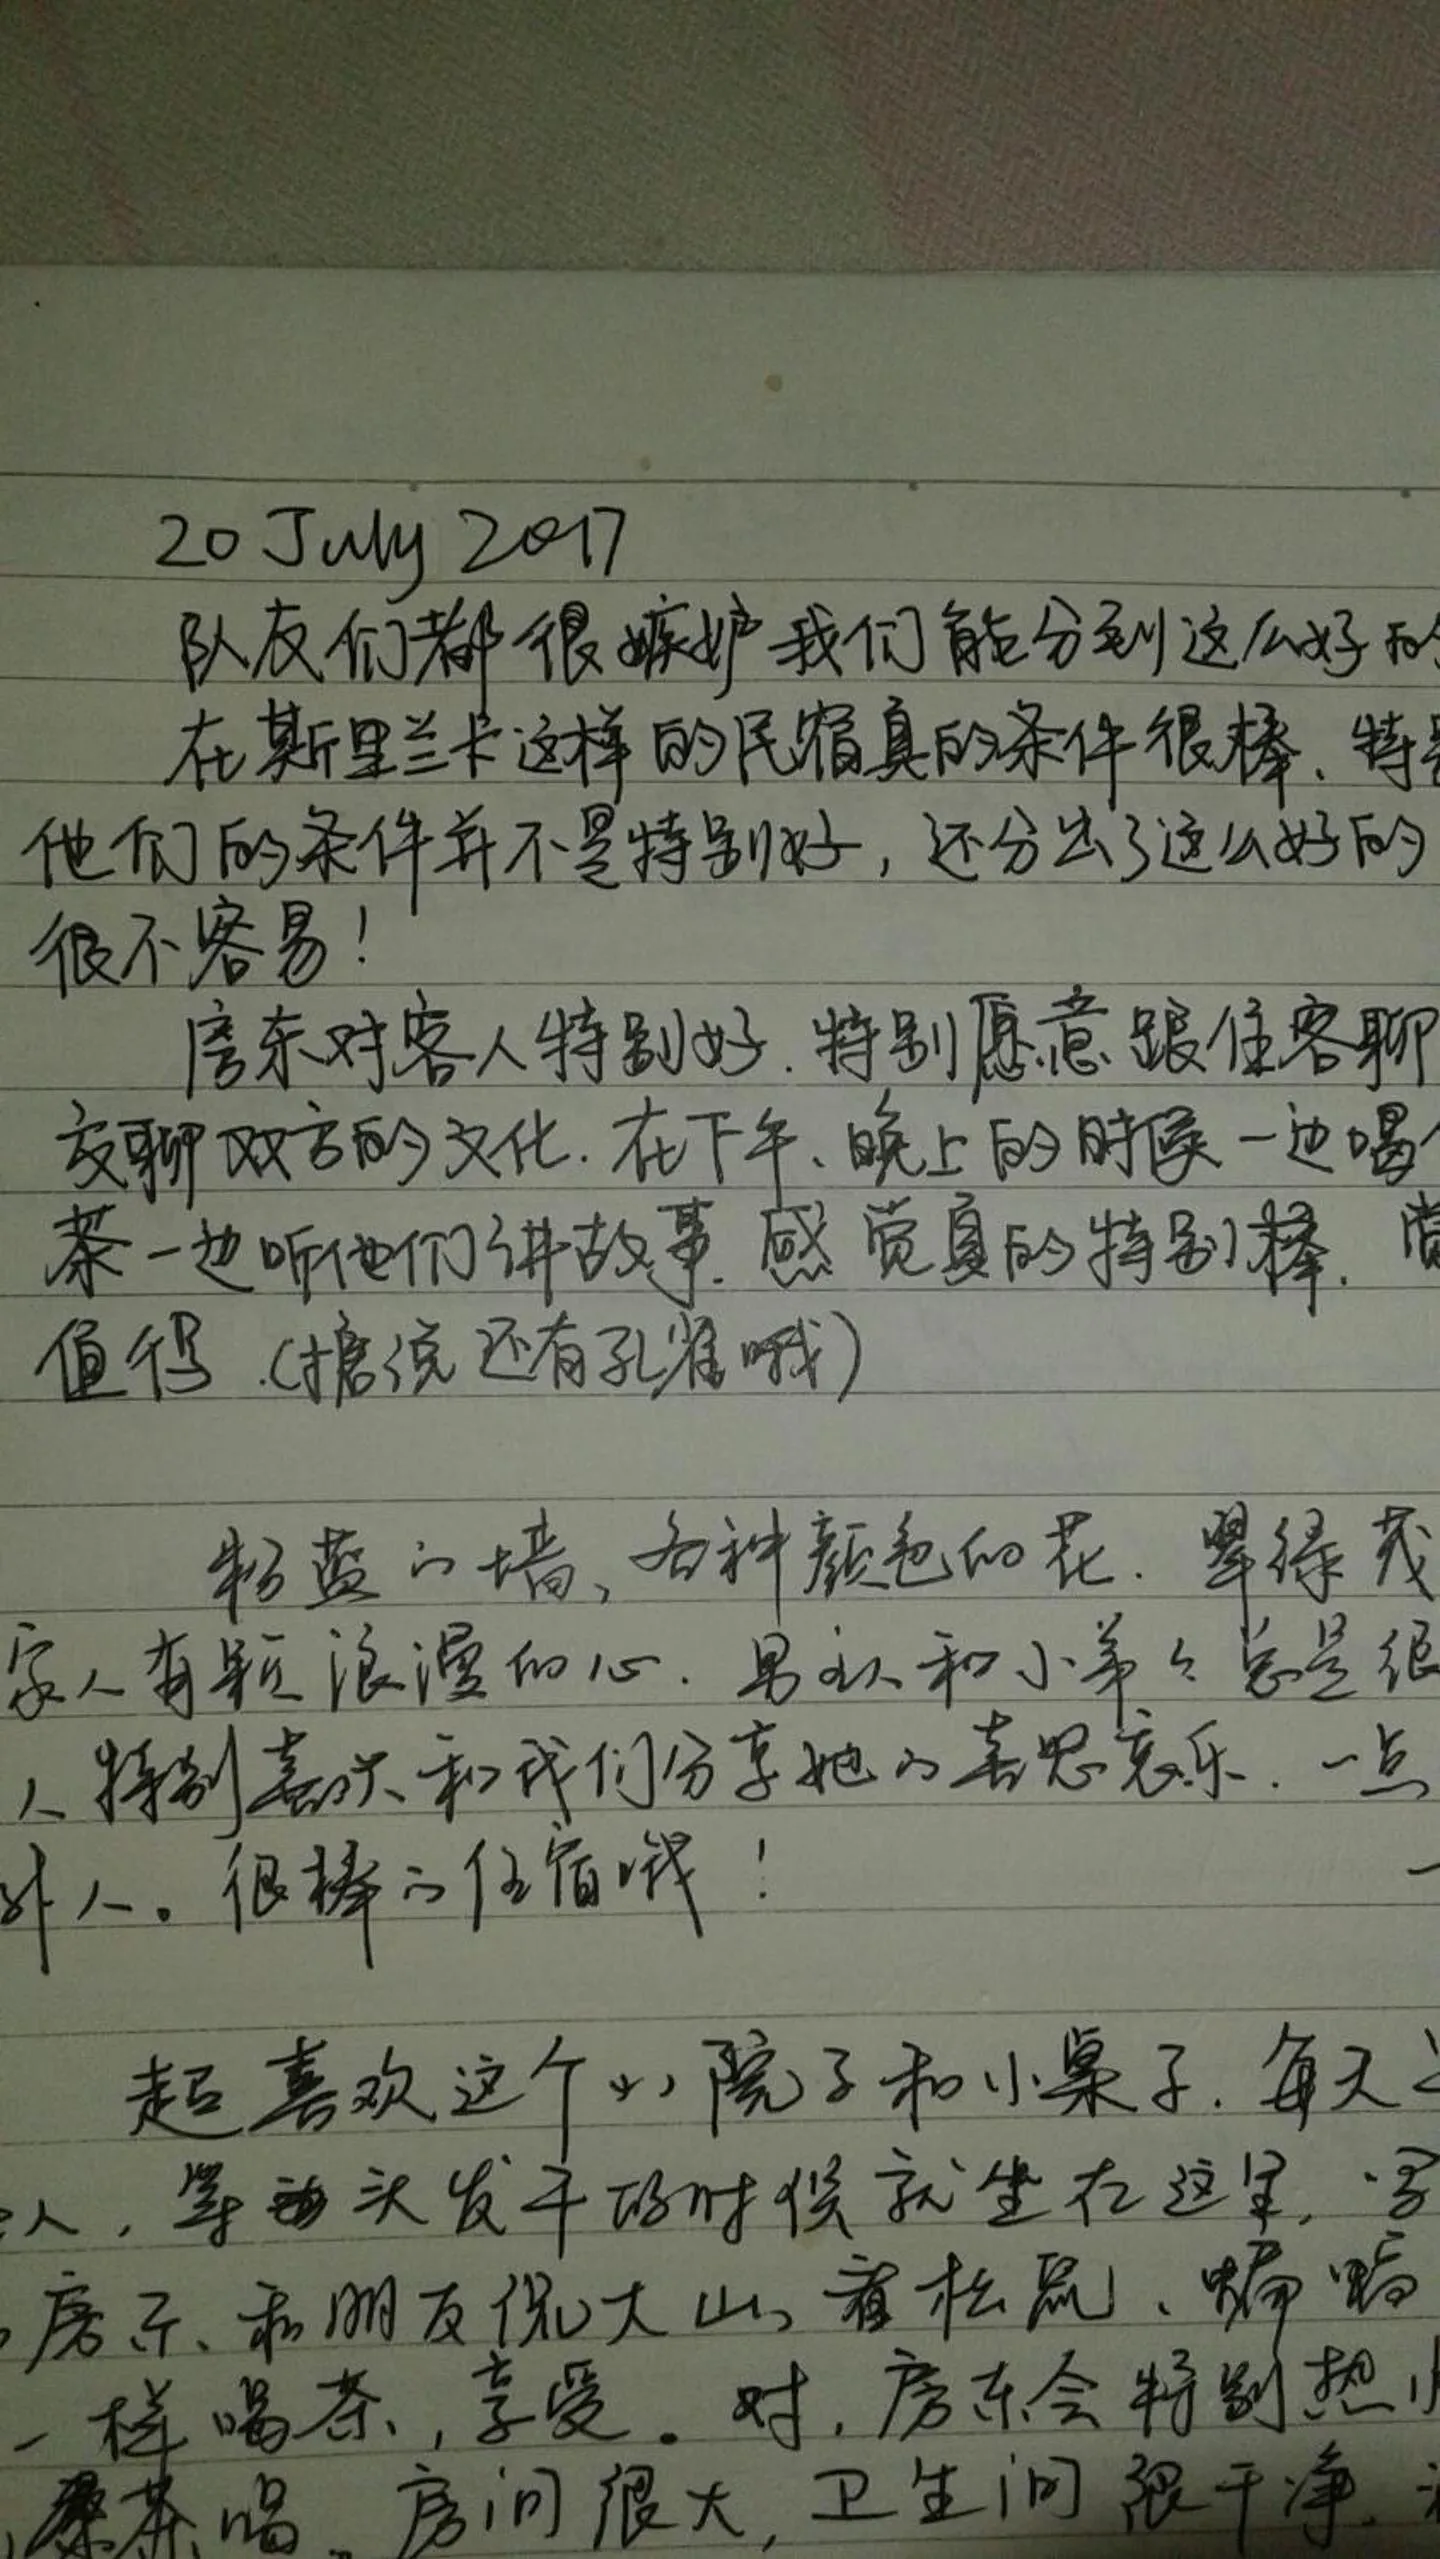 20 July 2017
队友们都很嫉妒我们能分到这么好的
在斯里兰卡这样的民宿真的条件很棒、特别
他们的条件并不是特别好，还分出了这么好的
很不容易！
房东对客人特别好.特别愿意跟住客聊
交聊双方的文化.在下午、晚上的时候一边喝
茶一边听他们讲故事.感觉真的特别棒.
值得.（据说还有孔雀哦）
粉蓝的墙、各种颜色的花.翠绿茂
家人有颗浪漫的心.男主人和小弟々总是很
人特别喜欢和我们分享她的喜思哀乐.一点
外人。很棒的住宿哦！
超喜欢这个小院子和小桌子.每天
人，等头发干的时候就坐在这里，写
房子、和朋友侃大山、看松鼠、蝙蝠
一样喝茶，享受。对，房东会特别热
茶喝.房间很大，卫生间很干净.